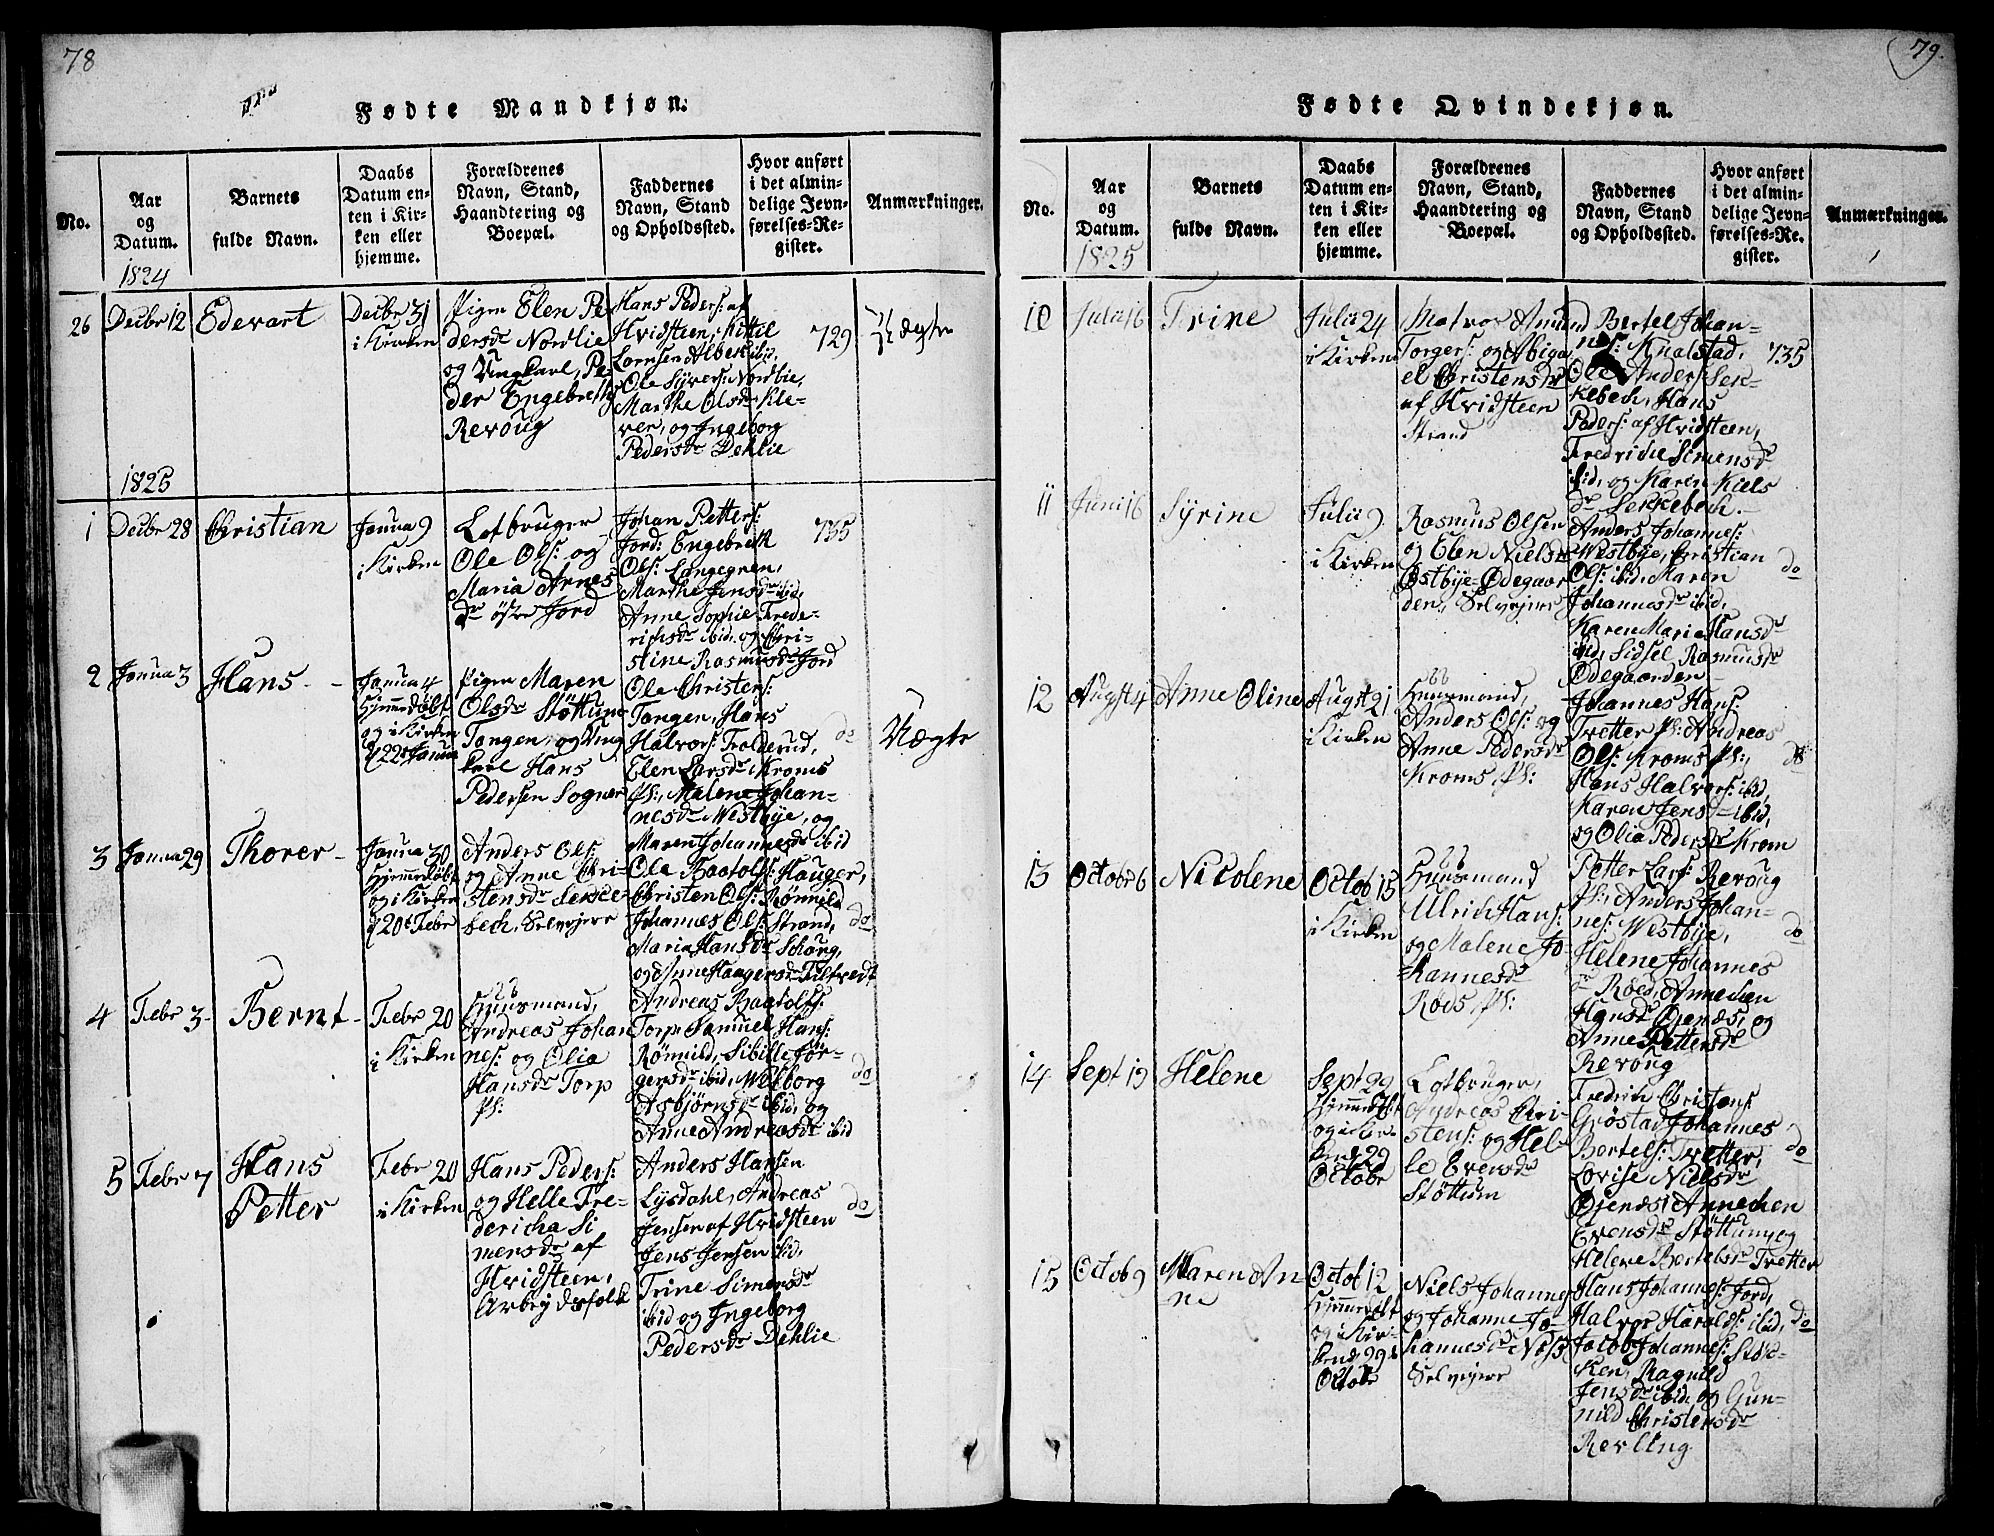 78
Fødte Mandkjøn.
No.
Aar
og
Datum.
1824
Barnets
fulde Navn.
Daabs
Datum en-
ten i Kir-
ken eller
hjemme.
Forældrenes
Navn, Stand,
Haandtering og
Boepæl.
Faddernes
Navn, Stand
og Opholdssted.
Hvor anført
i det almin-
delige Jevn-
førelses-Re-
gister.
Anmærkninger.
26
Decbr 12
Edevart
Decbr 31
i Kirken
Pigen Elen Pe
dersdr Nordlie
og Ungkarl, Pe
der Engebreths
Revoug
Hans Peders: af
Hvidsteen, Kittil
Lornsen Albek ibid,
Ole Syvers: Nordlie,
Marthe Olsdr Kle-
ver, og Ingeborg
Pedersdr Dehlie
729
Uægte
1825
1
Decbr 28
Christian
Janua 9
i Kirken
Lotbruger
Ole Ols: og
Maria Arnes
dr østre Jord
Johan Petters:
Jord: Engebreth
Ols: Langegren,
Marthe Jensdr ibid,
Anne Sophie Frede-
richsdr ibid, og Chri-
stine Rasmusdr Jord
735
2
Janua 3
Hans
Janua 4
hjemmedøbt
og i Kirken
d 22de Janua
Pigen Maren
Olsdr Støttum
Tangen, og Ung
karl Hans
Pedersen Sogner
Ole Christers:
Tangen, Hans
Halvors: Trolderud,
Elen Larsdr Kroms
Pl:, Malene Johan-
nesdr Westbye, og
Maren Johannesdr ibid
do
Uægte
3
Janua 29
Thorer
Janua 30
hjemmedøbt
og i Kirken
d 20de Febr
Anders Ols:
og Anne Chri-
stensdr Serke-
bech, Selvejere
Ole Baatolfs: Hauger,
Christen Ols: Rønnild
Johannes Ols: Strand,
Maria Hansdr Soboug,
og Anne Haagensdr Tilfredt
do
4
Febr 3
Bernt
Febr 20
i Kirken
Huusmand,
Andreas Johan
nes: og Olia
Hansdr Torp
Pl:
Andreas Baatolfs:
Torp, Samuel Hans:
Rønnild, Sibille Jør-
gensdr ibid, Wiborg
Asbjørnsdr ibid, og
Anne Andreasdr ibid
do
5
Febr 7
Hans
Petter
Febr 20
i Kirken
Hans Peders:
og Helle Fre-
dericha Si
mensdr af
Hvidsteen,
Arbejdsfolk
Anders Hansen
Lysdahl, Andreas
Jensen af Hvidsteen
Jens Jensen ibid,
Trine Simensdr
ibid og Ingeborg
Pedersdr Dehlie
do
79.
Fødte Qvindekjøn.
No.
Aar
og
Datum.
1825
Barnets
fulde Navn.
Daabs
Datum en-
ten i Kir-
ken eller
hjemme.
Forældrenes
Navn, Stand,
Haandtering og
Boepæl.
Faddernes
Navn, Stand
og Opholdssted.
Hvor anført
i det almin-
delige Jevn-
førelses-Re-
gister.
Anmærkninger.
10
Julii 16
Trine
Julii 24
i Kirken
Matros Amund
Torgers: og Abiga
el Christensdr
af Hvidsteen
Strand
Bertel Johan-
nes: Knalstad,
Ole Anders: Ser-
kebech, Hans
Peders: af Hvidsteen,
Fredriche Simensdr
ibid, og Karen Niels
dr Serkebech.
735
11
Junii 16
Syrine
Julii 9
i Kirken
Rasmus Olsen
og Elen Nielsdr
Østbye-Ødegaar
den, Selvejere
Anders Johannes:
Westbye, Christian
Ols: ibid, Maren
Johannesdr ibid,
Karen Maria Hansdr
ibid, Sidsel Rasmusdr
Ødegaarden
do
12
Augst 4
Anne Oline
Augst 21
i Kirken
Huusmand,
Anders Ols: og
Anne Pedersdr
Kroms, Pl:
Johannes Hans:
Tretter Pl: Andreas
Ols: Kroms Pl:,
Hans Halvors: ibid,
Karen Jensdr ibid,
og Olia Pedersdr Krom
do
13
Octobr 6
Nicolene
Octob 15
i Kirken
Huusmand
Ulrich Hans:
og Malene Jo-
hannesdr
Røds, Pl:
Petter Lars: Revoug
Pl:, Anders Johan-
nes: Westbye,
Helene Johannes
dr Roed, Annechen
Hansdr Øjenæs, og
Anne Pettersdr
Revoug
do
14
Sept 19
Helene
Sept 29
hjemmedøbt
og i Kir-
ken d 29
Octobr
Lotbruger,
Andreas Chri-
stens: og Hel-
le Evensdr
Støttum
Fredrik Christens
Grøstad, Johannes
Bertels: Tretter,
Lovise Nielsdr
Øjenæs, Annechen
Evensdr Støttum, og
Helene Bertelsdr Tretter
do
15
Octob 9
Maren An
ne
Octob 12
hjemmedøbt
og i Kir-
ken d 29de
Octobr
Niels Johannes
og Johanne Jo-
hannesdr Næss
Selvejere
Hans Johannes: Jord,
Halvor Haralds: ibid,
Jacob Johannes: Stok-
ken, Ragnild
Jensdr ibid, og Gun-
nild Christensdr
Revling
do